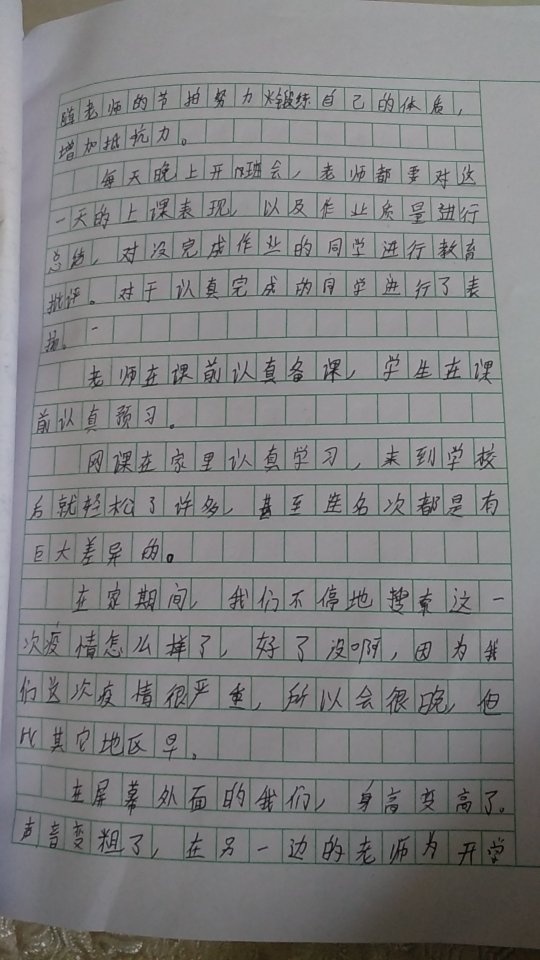 随老师的节拍努力锻练自己的体质,
增加抵抗力。
每天晚上开班会,老师都要对这
一天的上课表现,以及作业质量进行
总结,对没完成作业的同学进行教育
批评。对于认真完成的同学进行了表
扬。
老师在课前认真备课,学生在课
前认真预习。
网课在家里认真学习,来到学校
后就轻松了许多,甚至连名次都是有
巨大差异的。
在家期间,我们不停地搜索这一
次疫情怎么样了,好了没啊,因为我
们这次疫情很严重,所以会很晚,但
比其它地区早。
在屏幕外面的我们,身高变高了。
声音变粗了,在另一边的老师为开学